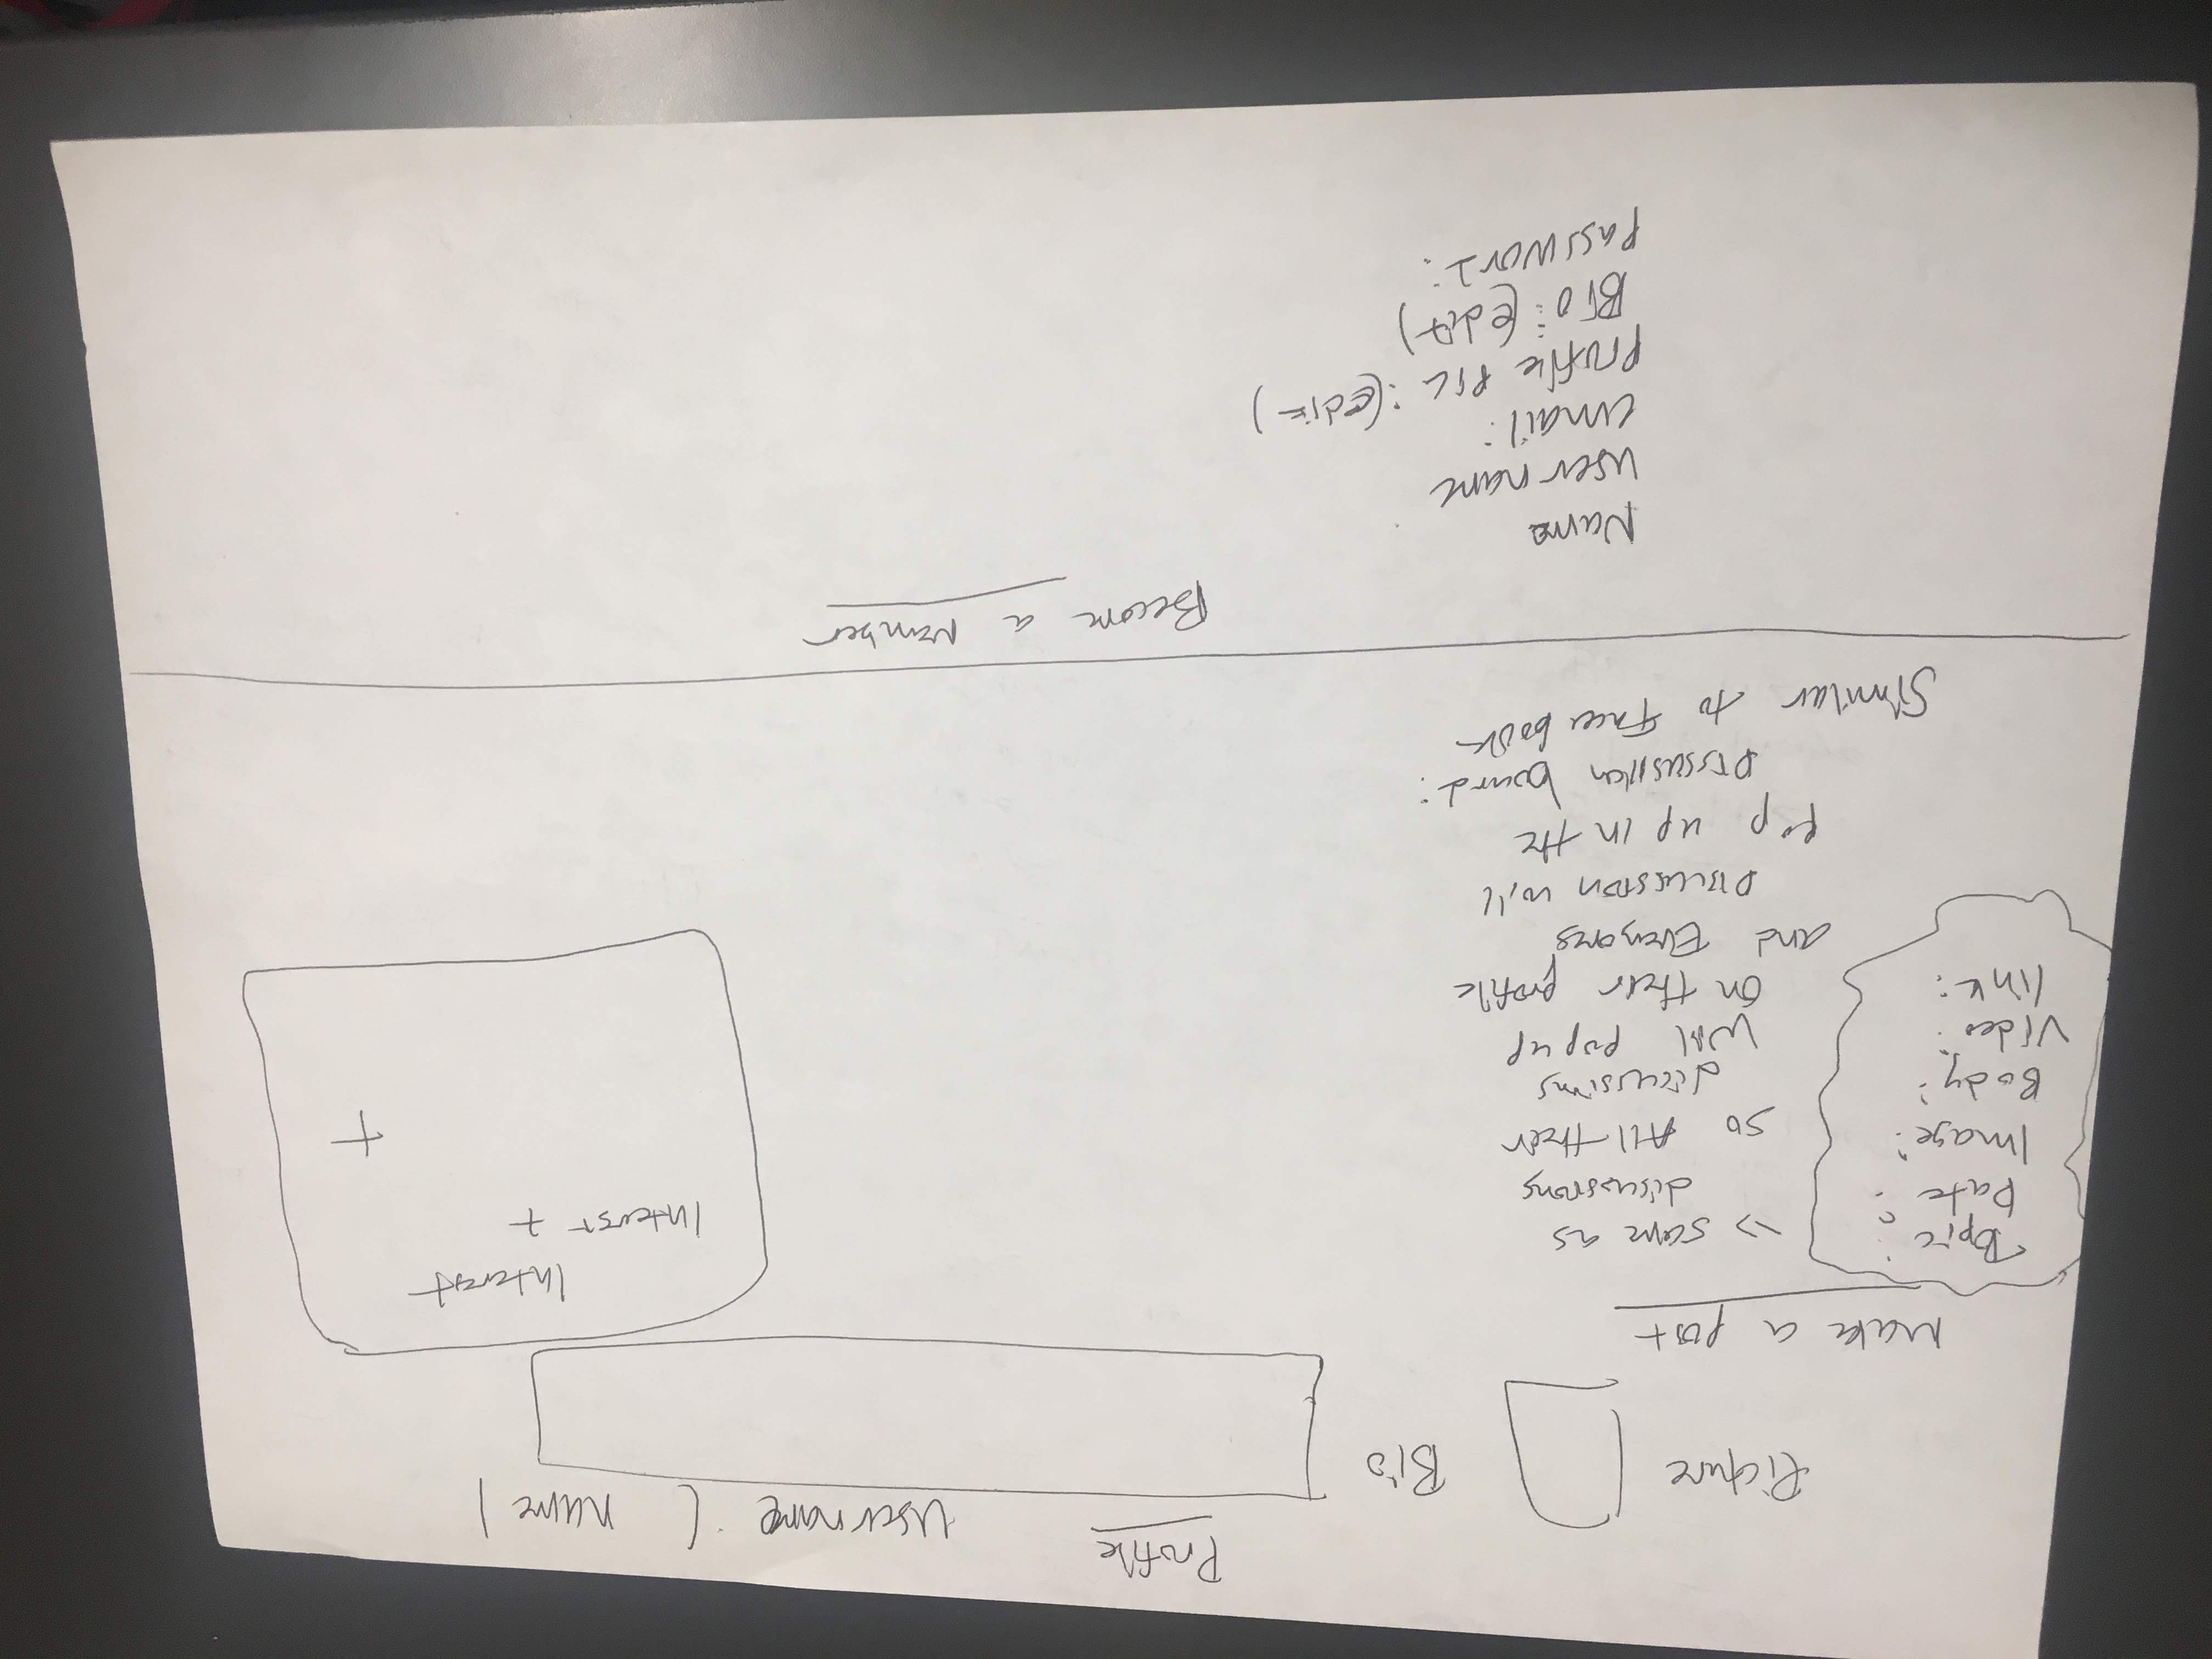 Profile
Username : ( name )
Picture
Bio
Interest
Interest +
+
Make a post
Topic :
Date :
Image :
Body :
Video :
link :
=> same as
discussions
so All their
discussions
will pop up
on their profile
and Everyones
Discussion will
pop up in the
Discussion board :
Similar to Facebook
Become a Member
Name
username
email :
Profile pic : (edit)
Bio : (edit)
Password :